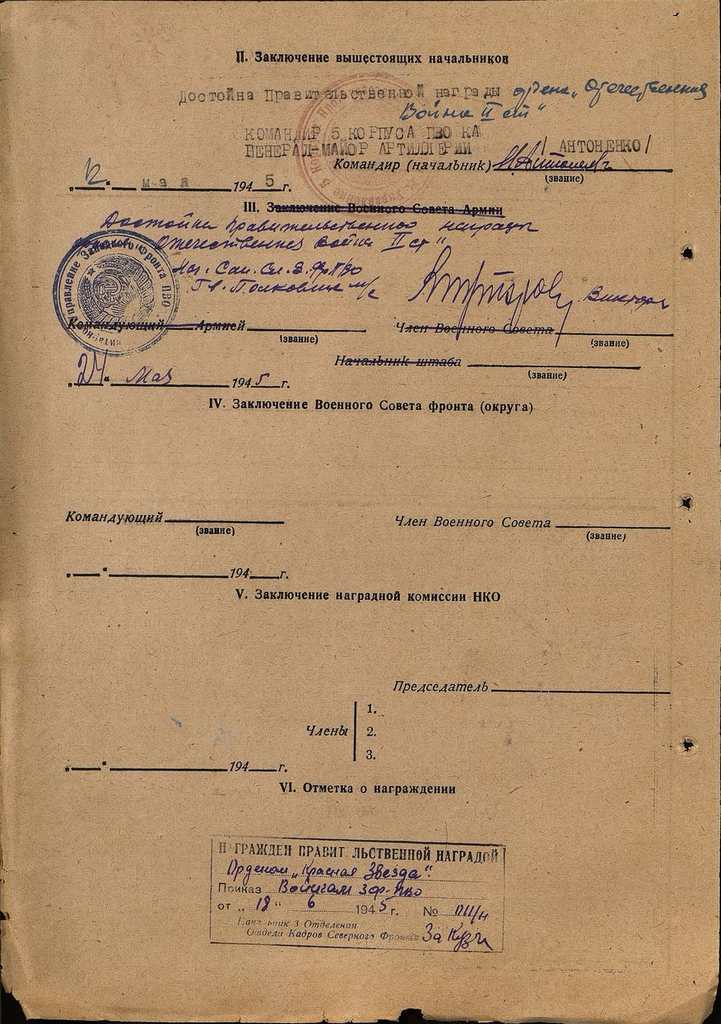 II. Заключение вышестоящих начальников
Достойна Правительственной награды ордена „Отечественная
Война II ст"
КОМАНДИР 5 КОРПУСА ПВО КА
ГЕНЕРАЛ-МАЙОР АРТИЛЛЕРИИ /АНТОНЕНКО/
Командир (начальник)
(звание)
„12" мая 1945 г.
III. Заключение Военного Совета Армии
Достойна правительственной награды
Отечественная война II ст"
Нач. Сан. Сл. З.Фр ПВО
Гв. Полковник м/с
Управление Западного Фронта ПВО
Командующий Армией
(звание)
Член Военного Совета
(звание)
Начальник штаба
(звание)
„24" Мая 1945 г.
IV. Заключение Военного Совета фронта (округа)
Командующий
(звание)
Член Военного Совета
(звание)
„ " 194 г.
V. Заключение наградной комиссии НКО
Председатель
Члены
1.
2.
3.
„ " 194 г.
VI. Отметка о награждении
Н ГРАЖДЕН ПРАВИТ ЛЬСТВЕННОЙ НАГРАДОЙ
Орденом „Красная Звезда".
Приказ Войскам З.Фр. ПВО
от „18" 6 1945 г. №
Начальник 3 Отделения
Отдела Кадров Северного Фронта За